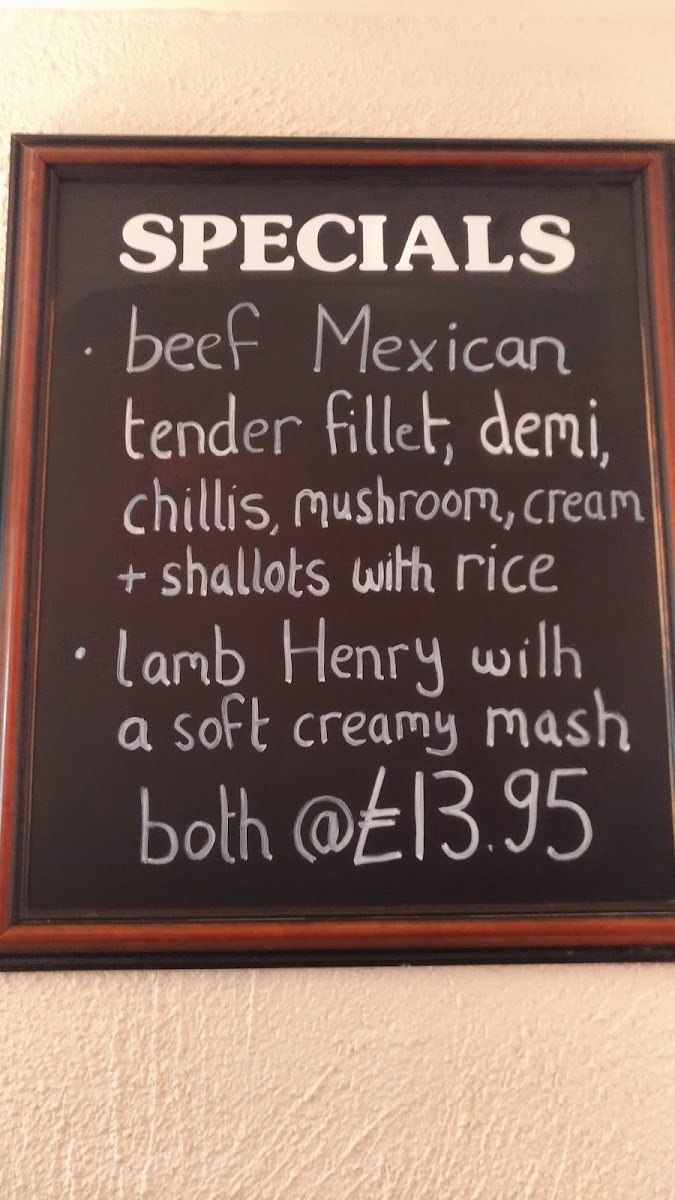 SPECIALS
· beef Mexican
tender fillet, demi,
chillis, mushroom, cream
+ shallots with rice
· lamb Henry with
a soft creamy mash
both @£13.95